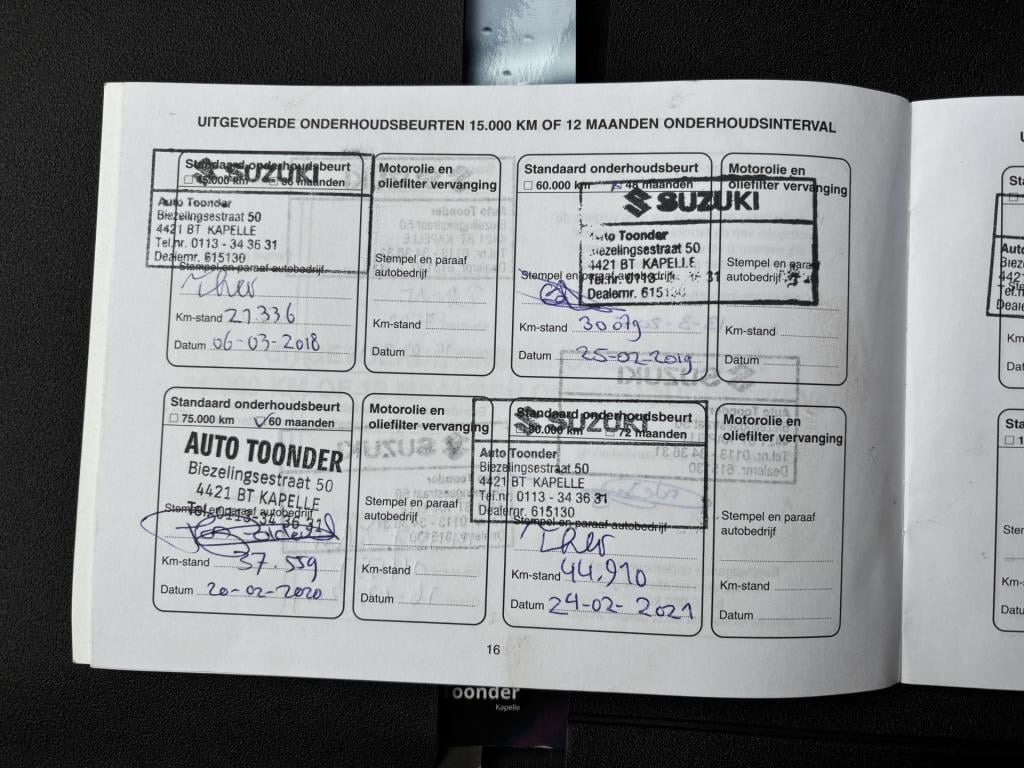 UITGEVOERDE ONDERHOUDSBEURTEN 15.000 KM OF 12 MAANDEN ONDERHOUDSINTERVAL
Standaard onderhoudsbeurt
SUZUKI
45.000 km 36 maanden
Auto Toonder
Biezelingsestraat 50
4421 BT KAPELLE
Tel.nr. 0113 - 34 36 31
Dealernr. 615130
Stempel en paraaf autobedrijf
Km-stand 21336
Datum 06-03-2018
Motorolie en
oliefilter vervanging
Stempel en paraaf
autobedrijf
Km-stand
Datum
Standaard onderhoudsbeurt
60.000 km 48 maanden
SUZUKI
Auto Toonder
Biezelingsestraat 50
4421 BT KAPELLE
Tel.nr. 0113 31
Dealernr. 615130
Stempel en paraaf autobedrijf
Km-stand 30079
Datum 25-02-2019
Motorolie en
oliefilter vervanging
Stempel en paraaf
autobedrijf
Km-stand
Datum
Standaard onderhoudsbeurt
75.000 km 60 maanden
AUTO TOONDER
Biezelingsestraat 50
4421 BT KAPELLE
Tel. 0113-34 36 31
Stempel en paraaf autobedrijf
Km-stand 37.559
Datum 20-02-2020
Motorolie en
oliefilter vervanging
Stempel en paraaf
autobedrijf
Km-stand
Datum
Standaard onderhoudsbeurt
SUZUKI
90.000 km 72 maanden
Auto Toonder
Biezelingsestraat 50
4421 BT KAPELLE
Tel.nr. 0113 - 34 36 31
Dealernr. 615130
Stempel en paraaf autobedrijf
Km-stand 44.910
Datum 24-02-2021
Motorolie en
oliefilter vervanging
Stempel en paraaf
autobedrijf
Km-stand
Datum
16
Toonder
Kapelle